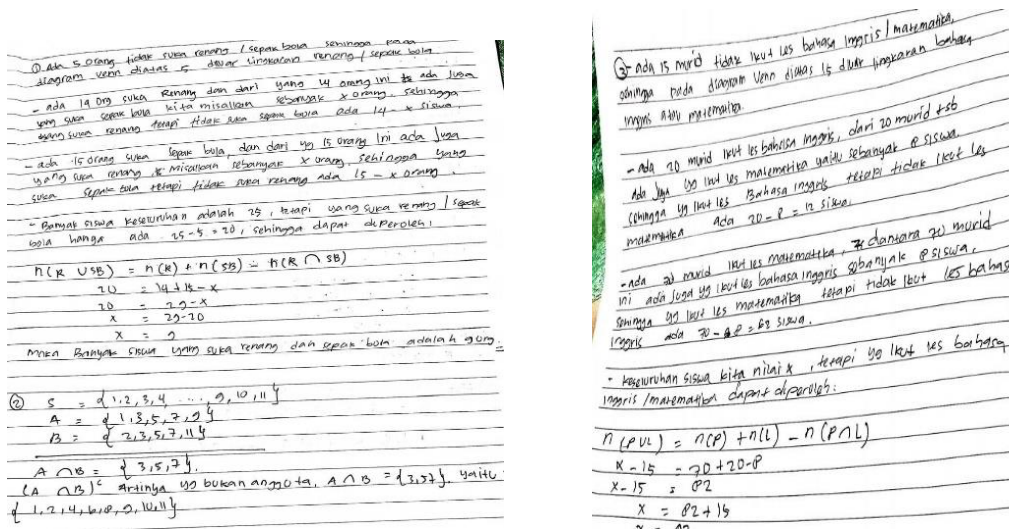 ① Ada 5 orang tidak suka renang / sepak bola sehingga pada
diagram venn diatas 5 diluar lingkaran renang / sepak bola
- ada 14 org suka Renang dan dari yang 14 orang ini ada juga
yang suka sepak bola kita misalkan sebanyak x orang, sehingga
yang suka renang tetapi tidak suka sepak bola ada 14 - x siswa.
- ada 15 orang suka sepak bola, dan dari yg 15 orang ini ada juga
yang suka renang misalkan sebanyak x orang, sehingga yang
suka sepak bola tetapi tidak suka renang ada 15 - x orang.
- Banyak siswa keseluruhan adalah 25, tetapi yang suka renang / sepak
bola hanya ada 25-5 = 20, sehingga dapat diperoleh,
n(R ∪ SB) = n(R) + n(SB) - n(R ∩ SB)
20 = 14 + 15 - x
20 = 29 - x
x = 29-20
x = 9
maka Banyak siswa yang suka renang dan sepak bola adalah 9 org.
② S = {1,2,3,4 ...., 9, 10, 11}
A = {1,3,5,7,9}
B = {2,3,5,7,11}
A ∩ B = {3,5,7}.
(A ∩ B)ᶜ artinya yg bukan anggota, A ∩ B = {3,57}. yaitu
{1,2,4,6,8,9,10,11}
③ - ada 15 murid tidak ikut les bahasa inggris / matematika,
sehingga pada diagram Venn diatas 15 diluar lingkaran bahasa
inggris atau matematika.
- Ada 20 murid ikut les bahasa inggris, dari 20 murid tsb
ada juga yg ikut les matematika yaitu sebanyak 8 siswa.
sehingga yg ikut les Bahasa inggris tetapi tidak ikut les
matematika ada 20 - 8 = 12 siswa
- ada 70 murid ikut les matematika, diantara 70 murid
ini ada juga yg ikut les bahasa inggris sebanyak 8 siswa,
sehingga yg ikut les matematika tetapi tidak ikut les bahasa
inggris ada 70 - 8 = 62 siswa.
- keseluruhan siswa kita nilai x, tetapi yg ikut les bahasa
inggris / matematika dapat diperoleh:
n(PUL) = n(P) + n(L) - n(P∩L)
x - 15 = 70 + 20 - 8
x - 15 = 82
x = 82 + 15